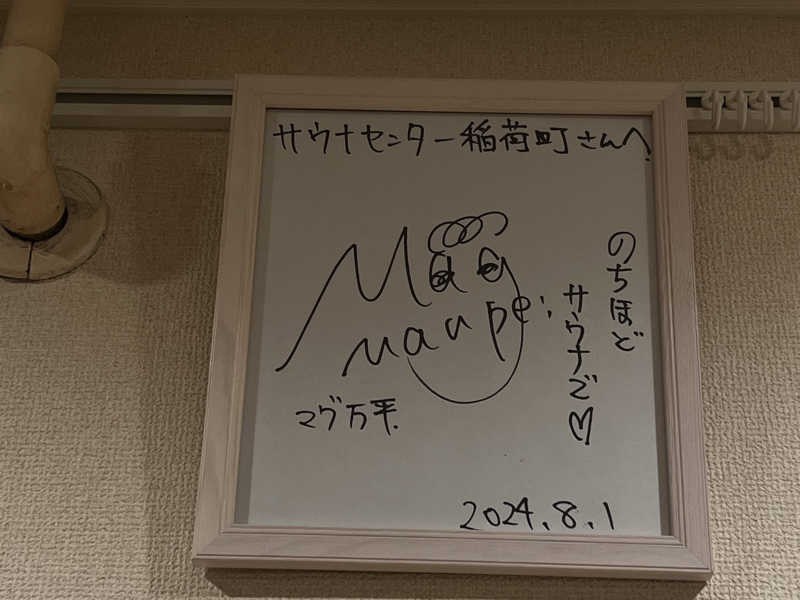 サウナセンター稲荷町さんへ
のちほど
サウナで♡
Mag
manpei
マグ万平
2024.8.1